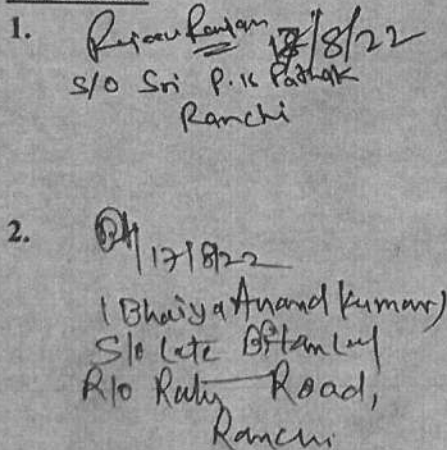 1. Rajeev Ranjan 17/8/22
S/O Sri P.K Pathak
Ranchi
2. 17/8/22
(Bhaiya Anand Kumar)
S/o Late
R/o Ratu Road,
Ranchi